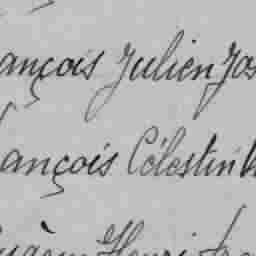 ançois Julien Jos
ançois Célestin
Henri